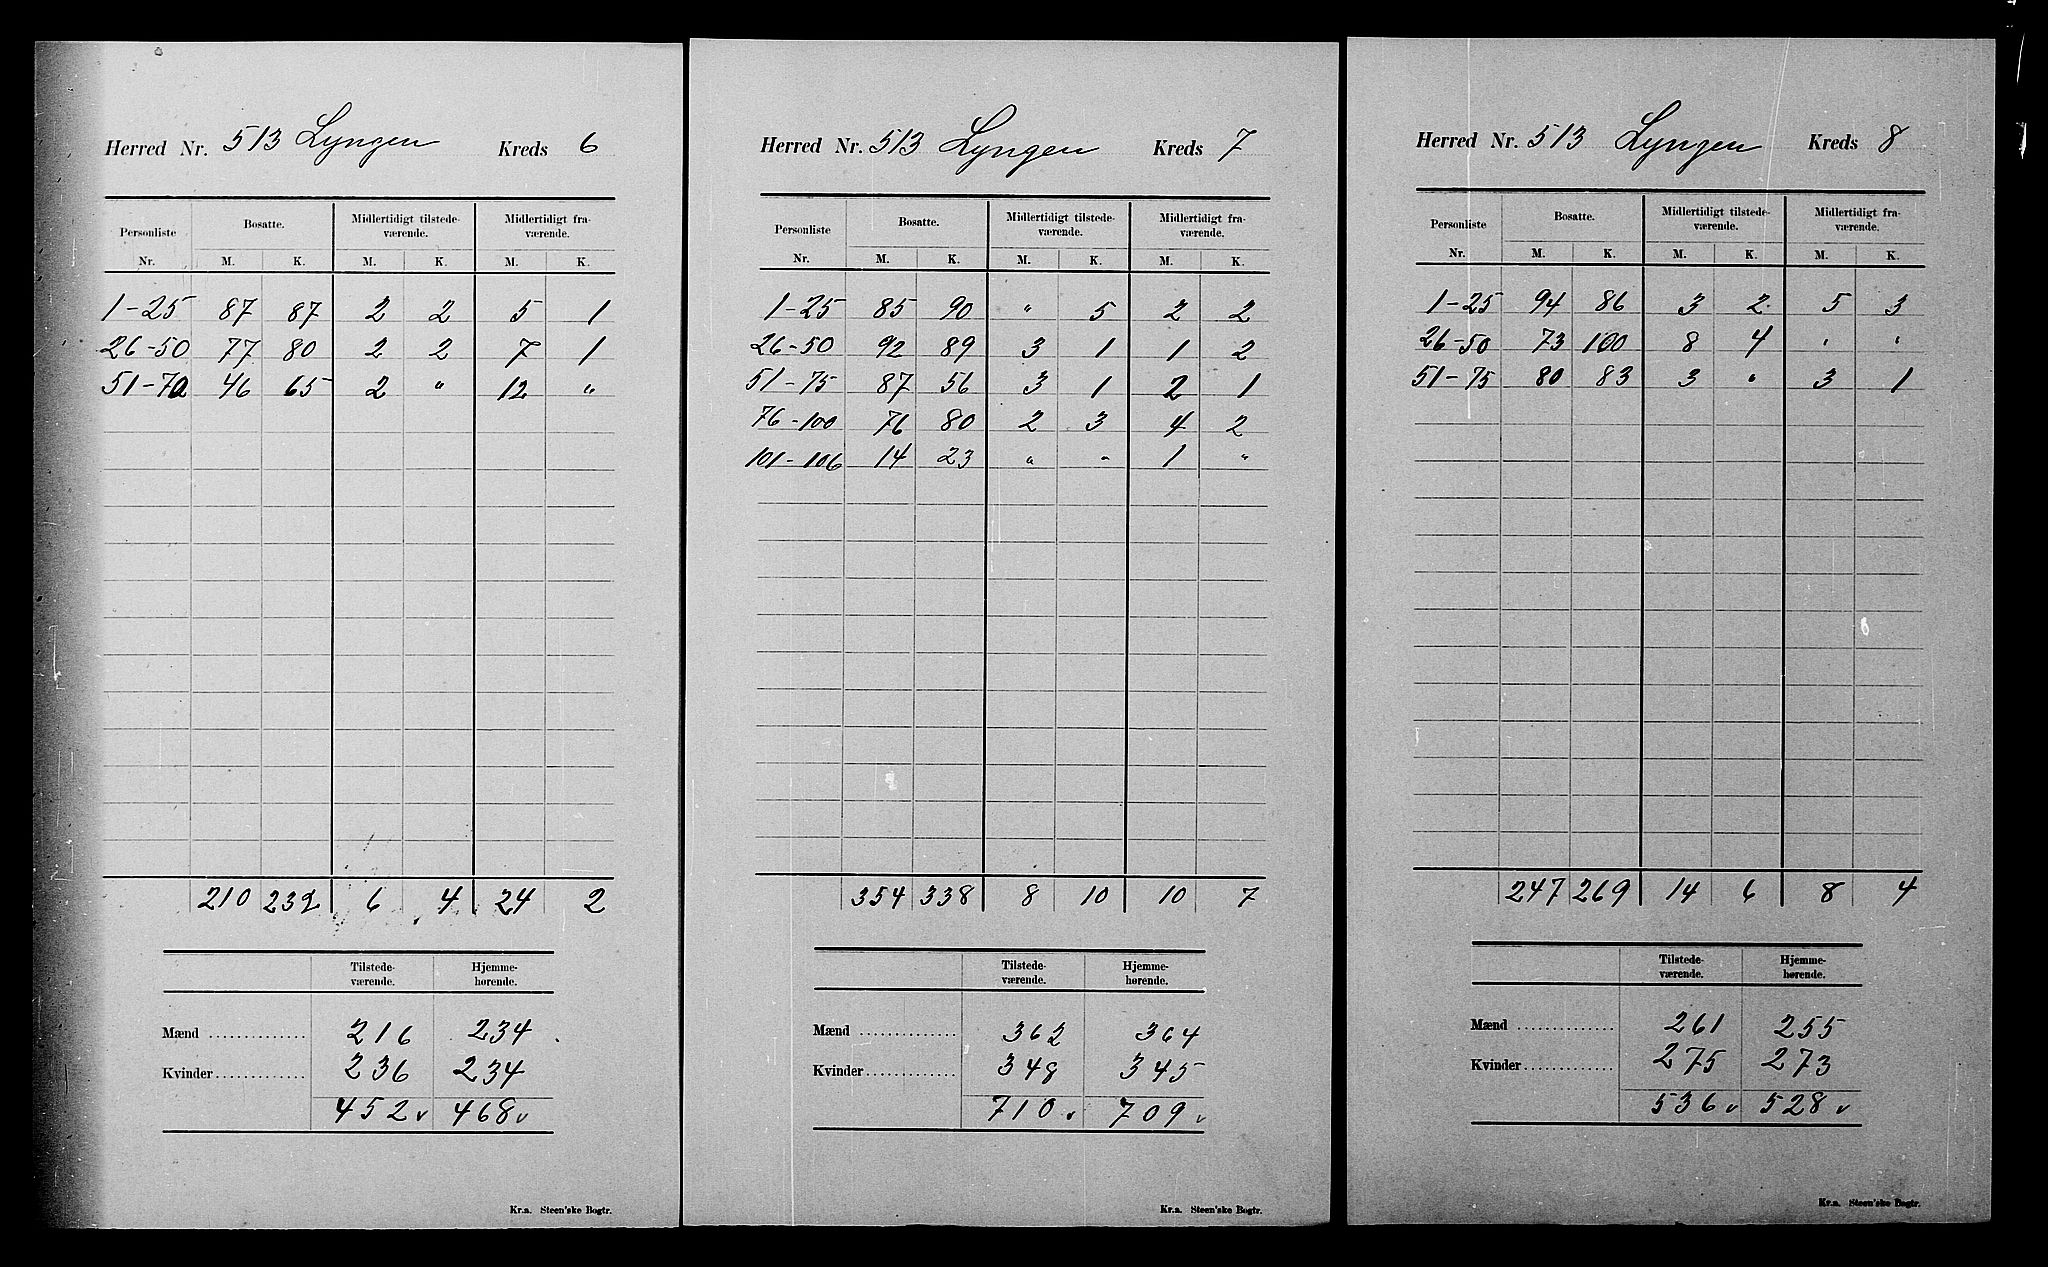 Herred Nr. 513 Lyngen Kreds 6
Personliste Bosatte. Midlertidigt tilstede- Midlertidigt fra-
værende. værende.
Nr. M. K. M. K. M. K.
1-25 87 87 2 2 5 1
26-50 77 80 2 2 7 1
51-70 46 65 2 " 12 "
210 232 6 4 24 2
Tilstede- Hjemme-
værende. hørende.
Mænd .............. 216 234
Kvinder ............. 236 234
452 v 468 v
Kr.a. Steen'ske Bogtr.
Herred Nr. 513 Lyngen Kreds 7
Personliste Bosatte. Midlertidigt tilstede- Midlertidigt fra-
værende. værende.
Nr. M. K. M. K. M. K.
1-25 85 90 " 5 2 2
26-50 92 89 3 1 1 2
51-75 87 56 3 1 2 1
76-100 76 80 2 3 4 2
101-106 14 23 " " 1 "
354 338 8 10 10 7
Tilstede- Hjemme-
værende. hørende.
Mænd .............. 362 364
Kvinder ............. 348 345
710 v 709 v
Kr.a. Steen'ske Bogtr.
Herred Nr. 513 Lyngen Kreds 8
Personliste Bosatte. Midlertidigt tilstede- Midlertidigt fra-
værende. værende.
Nr. M. K. M. K. M. K.
1-25 94 86 3 2 5 3
26-50 73 100 8 4 " "
51-75 80 83 3 " 3 1
247 269 14 6 8 4
Tilstede- Hjemme-
værende. hørende.
Mænd .............. 261 255
Kvinder ............. 275 273
536 v 528 v
Kr.a. Steen'ske Bogtr.